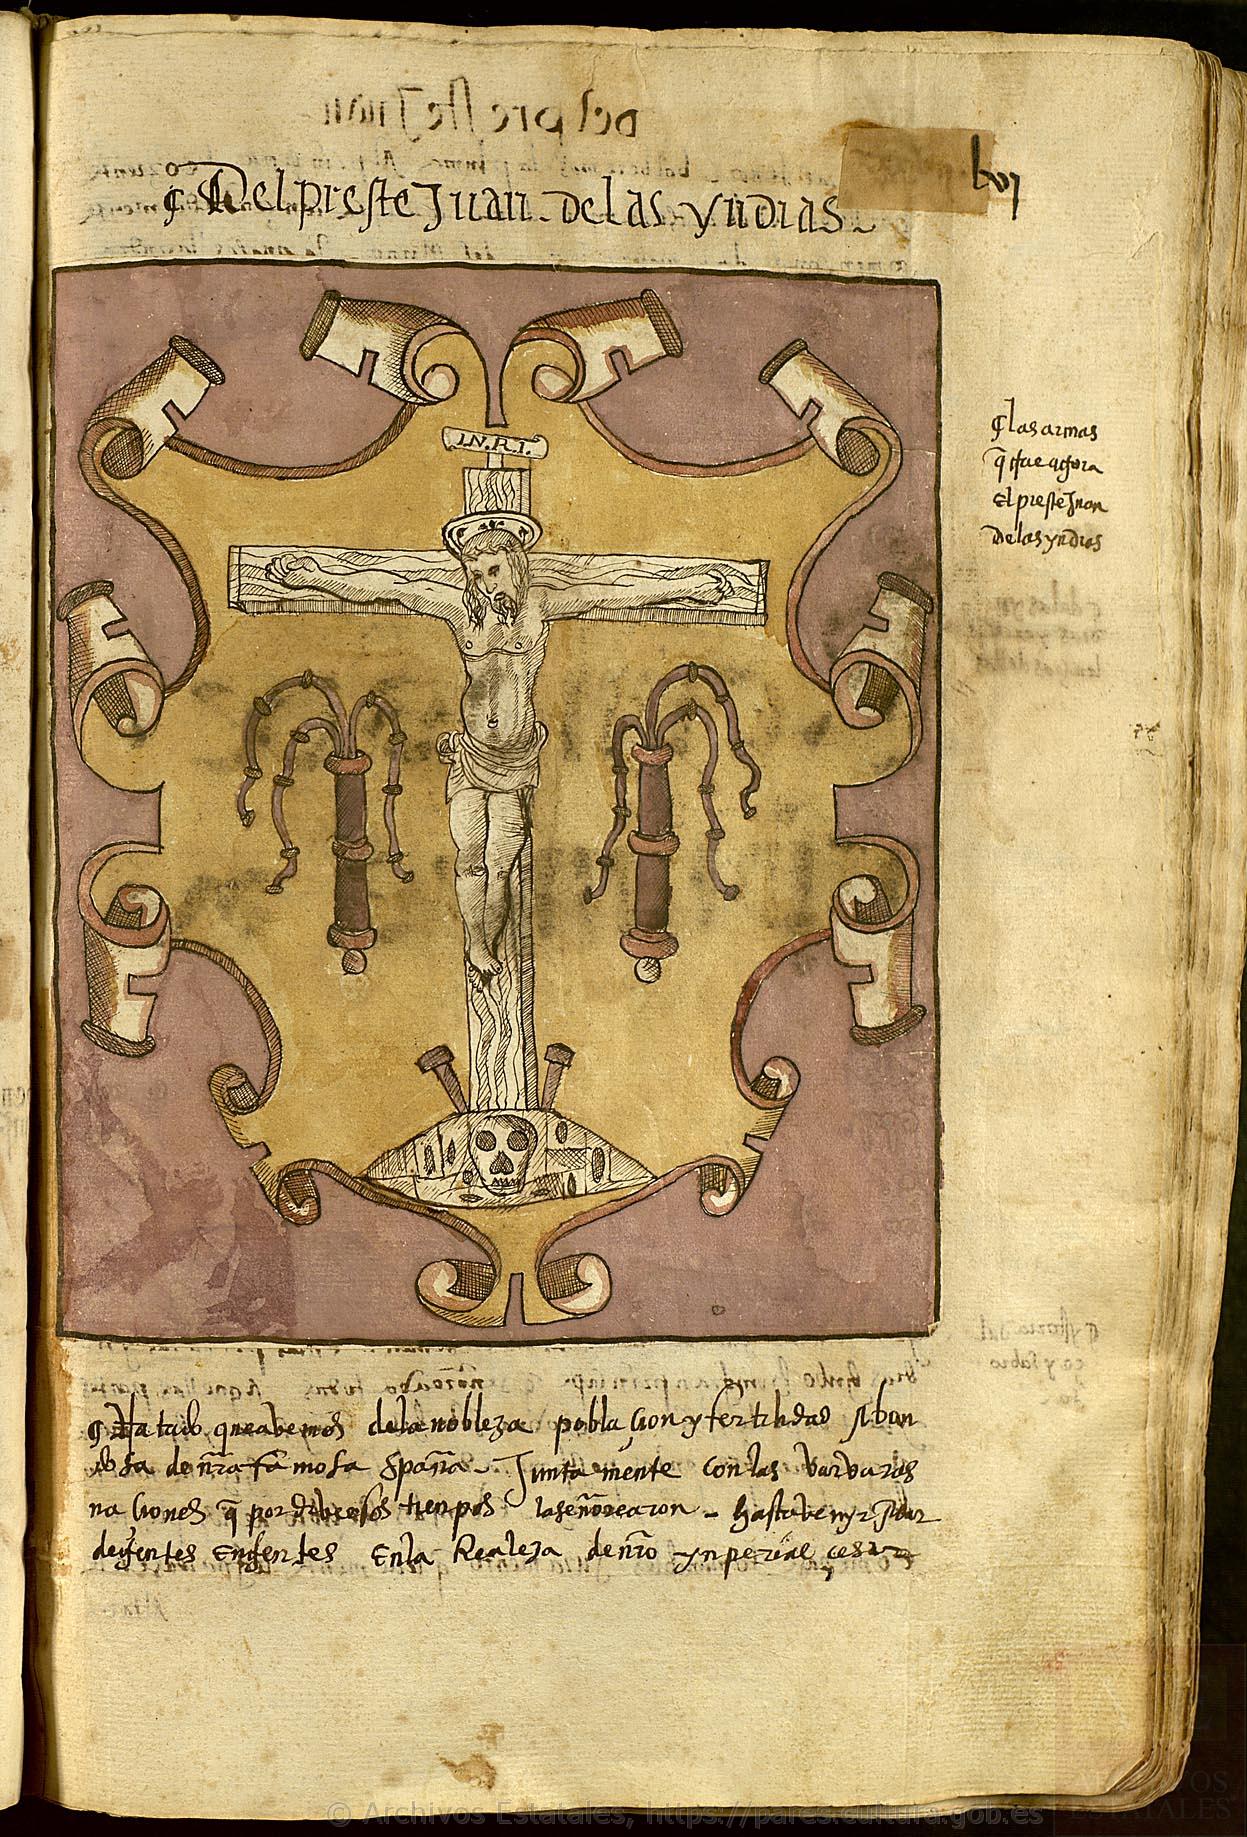 lvj
¶ Del preste Juan de las yndias
I.N.R.I.
¶ las armas
q̃ trae agora
El preste Juan
de las yndias
¶ tratado que abemos de la nobleza poblaçion y fertilidad Abun
dosa de nr̃a famosa España Junta mente con las barbaras
naçiones q̃ por dibersos tienpos la señorearon hasta benyr
de gentes en gentes en la Realeza de nr̃o ynperial çesar
© Archivos Estatales, https://pares.cultura.gob.es
ARCHIVOS
ESTATALES